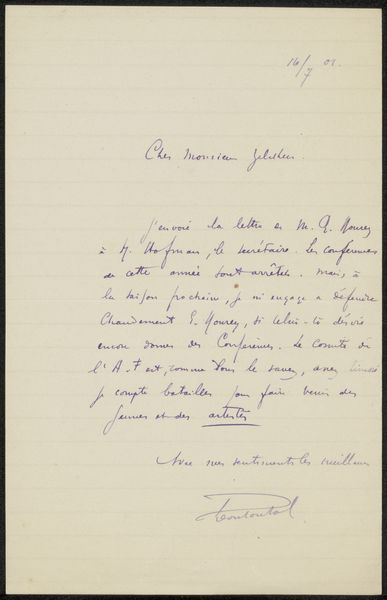 16/7 01.
Cher Monsieur Zilcken.
J'envoie la lettre de M. G. Mourey
à M. Hofman, le secrétaire. Les conférences
de cette année sont arrêtées. Mais, à
la saison prochaine, je m'engage à défendre
chaudement G. Mourey, si celui-là désire
encore donner des Conférences. Le Comité de
l'A. F est, comme vous le savez, assez
je compte batailler pour faire venir des
jeunes et des artistes
Avec mes sentiments les meilleurs